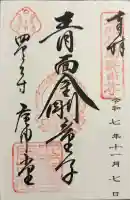 奉拝
令和七年十一月七日
青面金剛童子
四天王寺
庚申堂